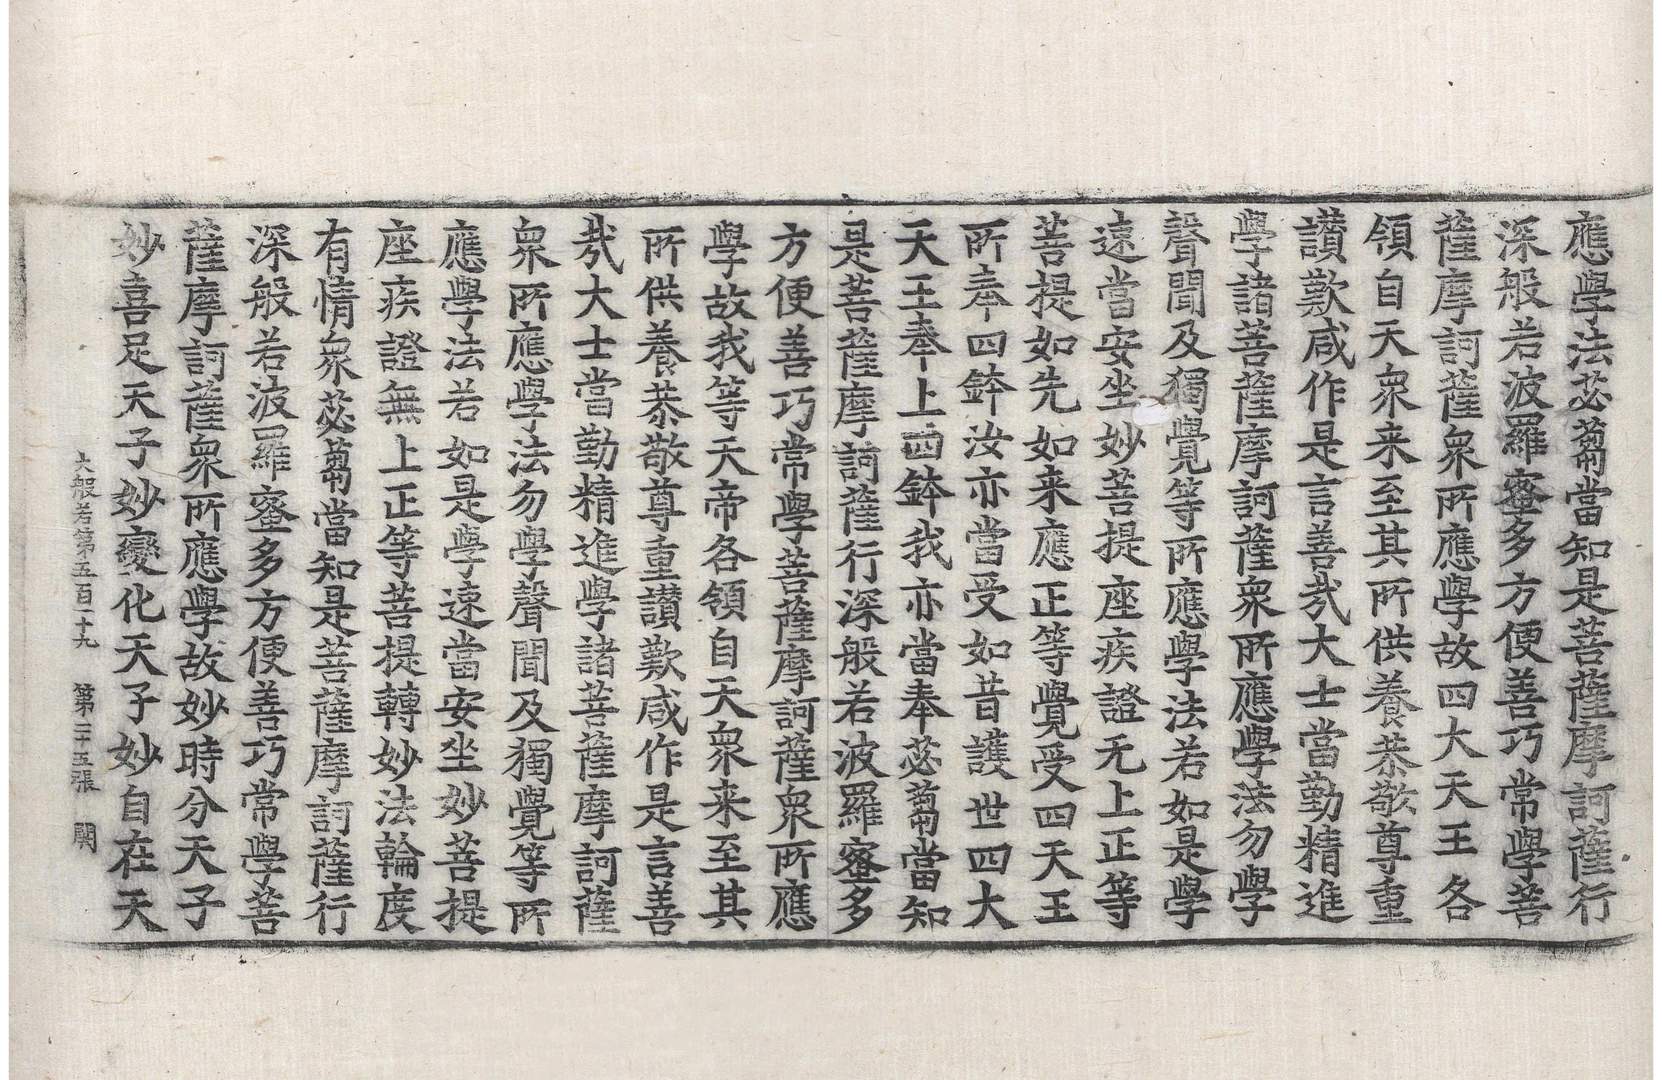 應學法苾蒭當知是菩薩摩訶薩行
深般若波羅蜜多方便善巧常學菩
薩摩訶薩衆所應學故四大天王各
領自天衆来至其所供養恭敬尊重
讃歎咸作是言善㢤大士當勤精進
學諸菩薩摩訶薩衆所應學法勿學
聲聞及獨覺等所應學法若如是學
速當安坐妙菩提座疾證无上正等
菩提如先如来應正等覺受四天王
所奉四鉢汝亦當受如昔護世四大
天王奉上四鉢我亦當奉苾蒭當知
是菩薩摩訶薩行深般若波羅蜜多
方便善巧常學菩薩摩訶薩衆所應
學故我等天帝各領自天衆来至其
所供養恭敬尊重讃歎咸作是言善
㢤大士當勤精進學諸菩薩摩訶薩
衆所應學法勿學聲聞及獨覺等所
應學法若如是學速當安坐妙菩提
座疾證無上正等菩提轉妙法輪度
有情衆苾蒭當知是菩薩摩訶薩行
深般若波羅蜜多方便善巧常學菩
薩摩訶薩衆所應學故妙時分天子
妙喜足天子妙變化天子妙自在天
大般若第五百十九 第二十五張 闕